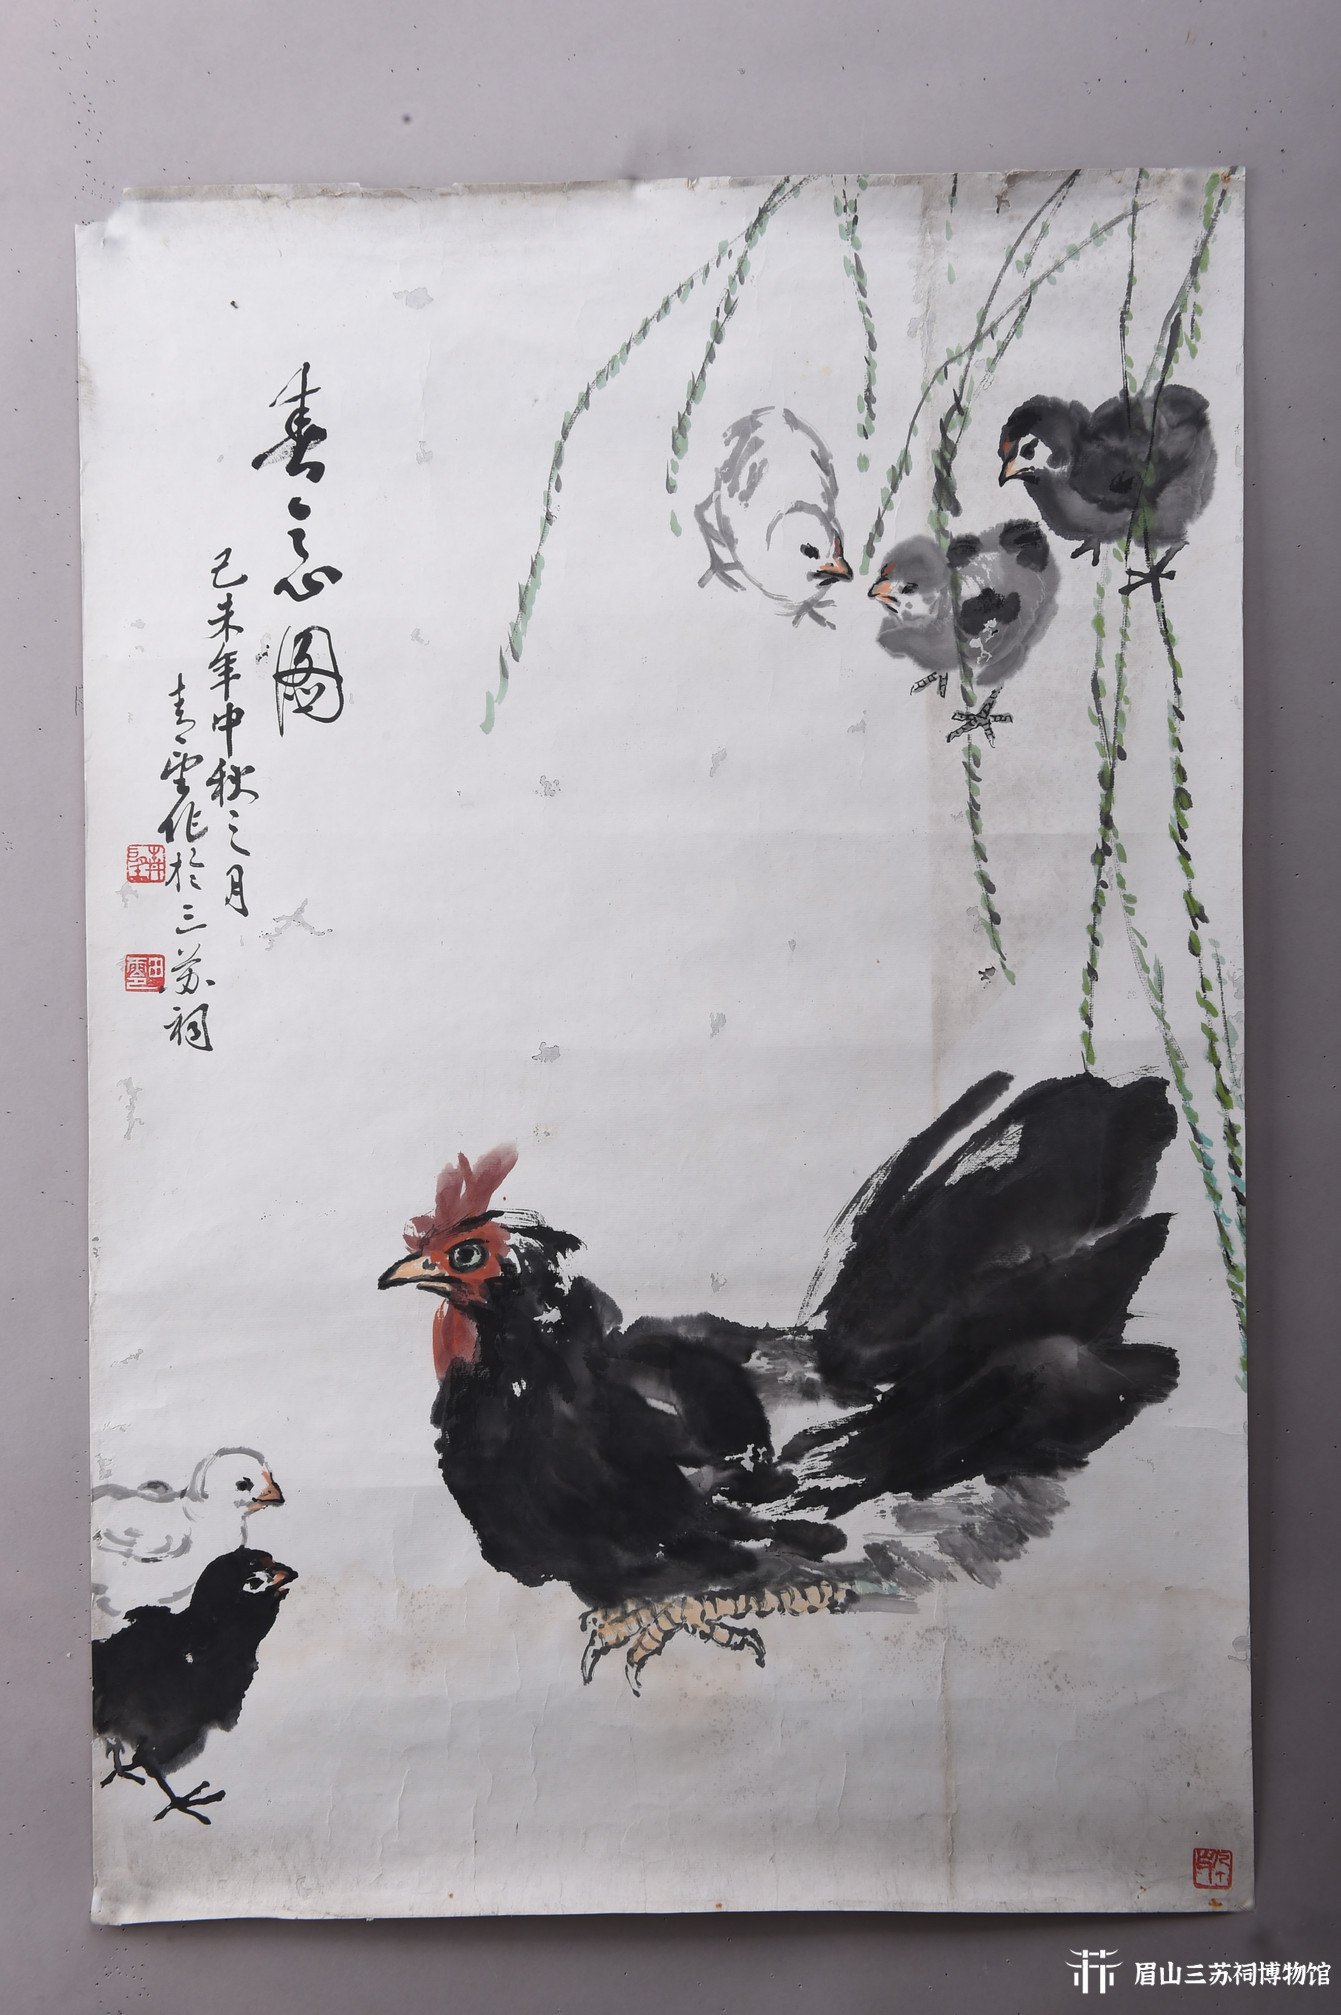 春意图
己未年中秋之月
青云作於三苏祠
眉山三苏祠博物馆